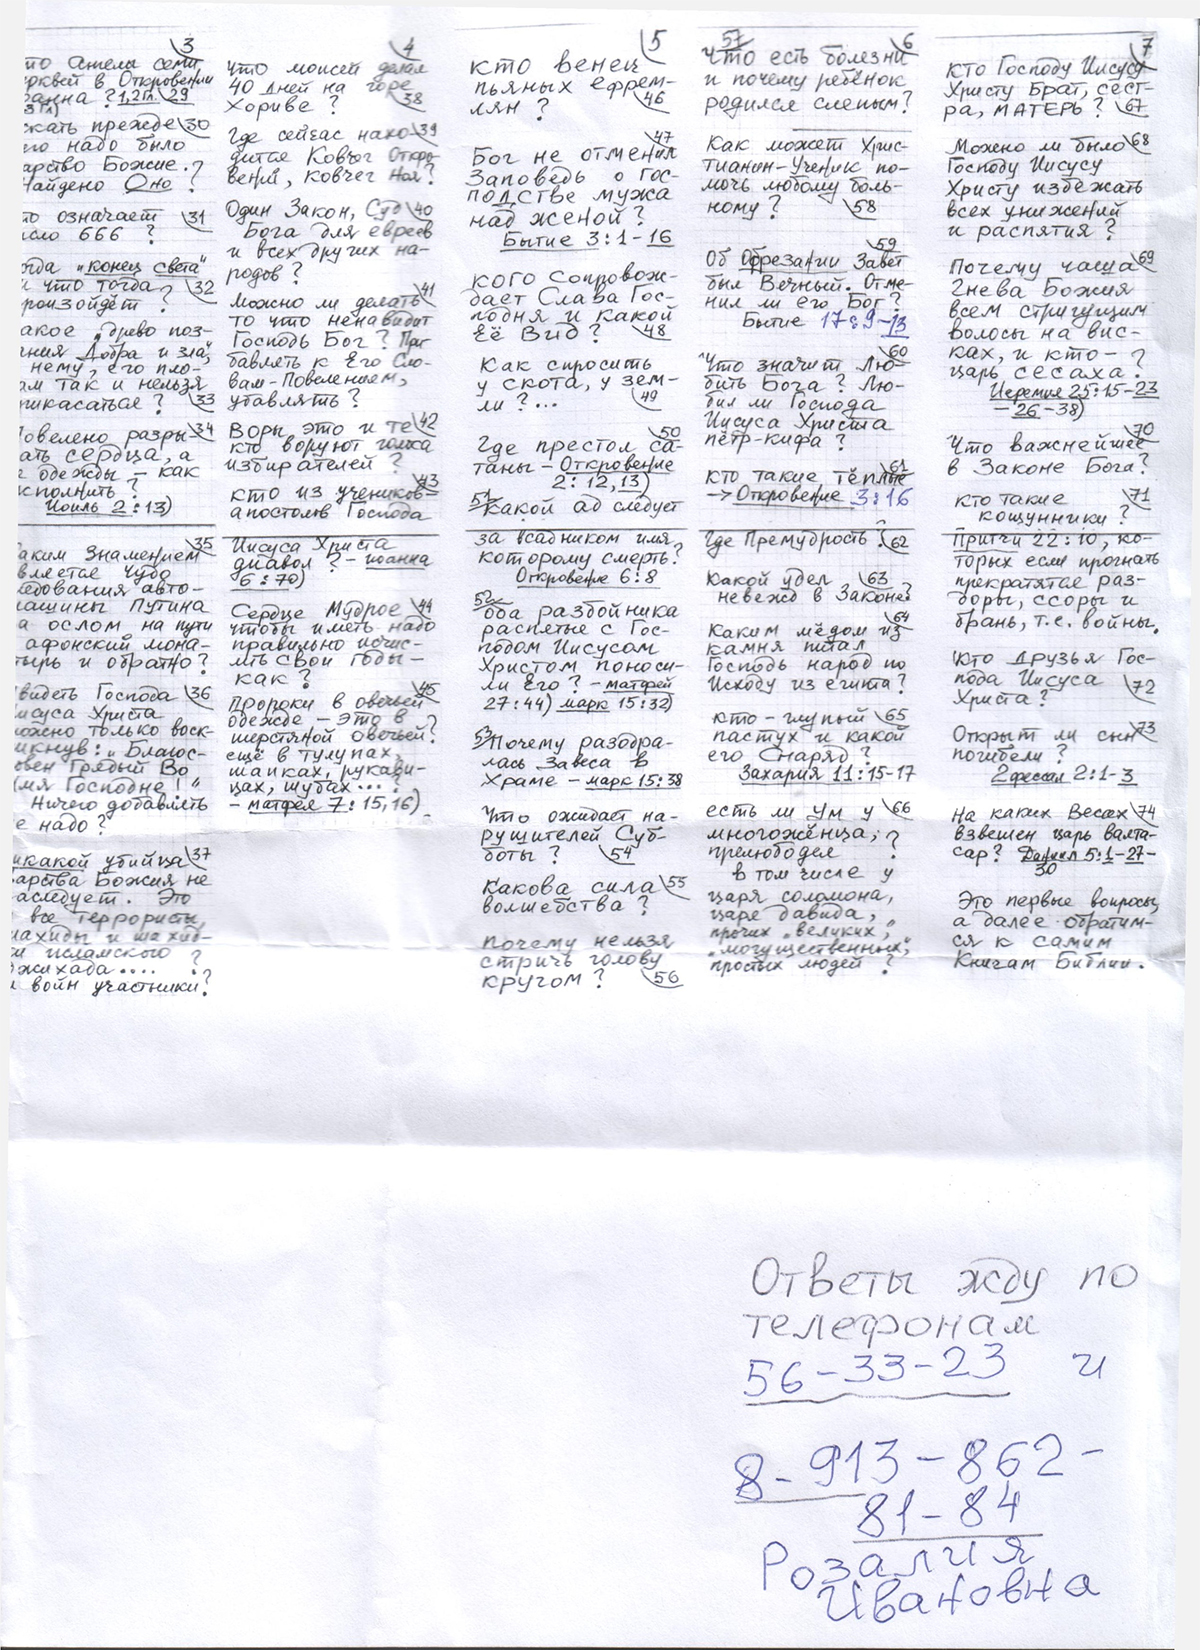 3
то Ангелы семи
рквей в Откровении
анна? 1,2гл. 29
3 гл)
скать прежде 30
его надо было
арство Божие.?
Найдено Оно?
то означает 31
исло 666 ?
огда "конец света"
и что тогда ? 32
роизойдёт ?
акое "древо поз-
ния Добра и зла",
нему, его пло-
ам так и нельзя
рикасаться? 33
Повелено разры- 34
ать сердца, а
е одежды - как
сполнить ?
Иоиль 2:13)
аким Знамением 35
вляется Чудо
ледования авто-
ашины Путина
а ослом на пути
афонский мона-
тырь и обратно?
видеть Господа 36
исуса Христа
ожно только воск-
икнув: "Благос-
овен Грядый Во
мя Господне!"
Ничего добавлять
е надо?
икакой убийца 37
арства Божия не
аследует. Это
все террористы,
шахиды и шахид-
ки исламского ?
джихада ....
и войн участники?
4
Что моисей делал
40 дней на горе
Хориве ? 38
Где сейчас нахо- 39
дится Ковчег Откро-
вения, ковчег Ноя?
Один Закон, Суд 40
Бога для евреев
и всех других на-
родов ?
Можно ли делать 41
то что ненавидит
Господь Бог ? При
бавлять к Его Сло-
вам-Повелением,
убавлять ?
Воры это и те 42
кто воруют голоса
избирателей ?
кто из учеников- 43
апостолов Господа
Иисуса Христа
диавол ? - иоанна
6:70)
Сердце Мудрое 44
чтобы иметь надо
правильно исчис-
лять свои годы -
как ?
Пророки в овечьей 45
одежде - это в ?
шерстяной овечьей?
ещё в тулупах,
шапках, рукави-
цах, шубах ... ?
- матфея 7:15,16)
5
кто венец
пьяных ефрем-
лян ? 46
47
Бог не отменил
Заповедь о Гос-
подстве мужа
над женой ?
Бытие 3:1-16
кого сопровож-
дает Слава Гос-
подня и какой
Её Вид ? 48
Как спросить
у скота, у зем-
ли ?... 49
50
Где престол са-
таны - Откровение
2:12,13)
51 Какой ад следует
за всадником имя
которому смерть?
Откровение 6:8
52
оба разбойника
распятые с Гос-
подом Иисусом
Христом поноси-
ли Его ? - матфей
27:44) марк 15:32)
53 Почему разодра-
лась Завеса в
Храме - марк 15:38
Что ожидает на-
рушителей Суб-
боты ? 54
Какова сила 55
волшебства ?
почему нельзя
стричь голову
кругом ? 56
57 6
Что есть болезни
и почему ребёнок
родился слепым?
Как может Хрис-
тианин-Ученик по-
мочь любому боль-
ному ? 58
59
Об Обрезании Завет
был Вечный. Отме-
нил ли его Бог ?
Бытие 17:9-13
60
Что значит Лю-
бить Бога ? Лю-
бил ли Господа
Иисуса Христа
пётр-кифа ?
кто такие тёплые 61
-> Откровение 3:16
Где Премудрость ? 62
Какой удел 63
невежд в Законе?
64
Каким мёдом из
камня питал
Господь народ по
Исходу из египта?
кто - глупый 65
пастух и какой
его Снаряд ?
Захария 11:15-17
есть ли Ум у 66
многожёнца, ?
прелюбодея
в том числе у
царя соломона,
царя давида,
прочих "великих",
"могущественных",
простых людей ?
7
кто Господу Иисусу
Христу Брат, сест-
ра, МАТЕРЬ ? 67
Можно ли было 68
Господу Иисусу
Христу избежать
всех унижений
и распятия ?
Почему чаша 69
Гнева Божия
всем стригущим
волосы на вис-
ках, и кто - ?
царь сесаха ?
Иеремия 25:15-23
-26-38)
70
Что важнейшее
в Законе Бога?
кто такие 71
кощунники ?
Притчи 22:10, ко-
торых если прогнать
прекратятся раз-
доры, ссоры и
брань, т.е. войны.
Кто Друзья Гос-
пода Иисуса 72
Христа ?
Открыт ли сын 73
погибели ?
2 фессал 2:1-3
На каких Весах 74
взвешен царь валта-
сар? Даниил 5:1-27-
30
Это первые вопросы,
а далее обратим-
ся к самим
Книгам Библии.
Ответы жду по
телефонам
56-33-23 и
8-913-862-
81-84
Розалия
Ивановна